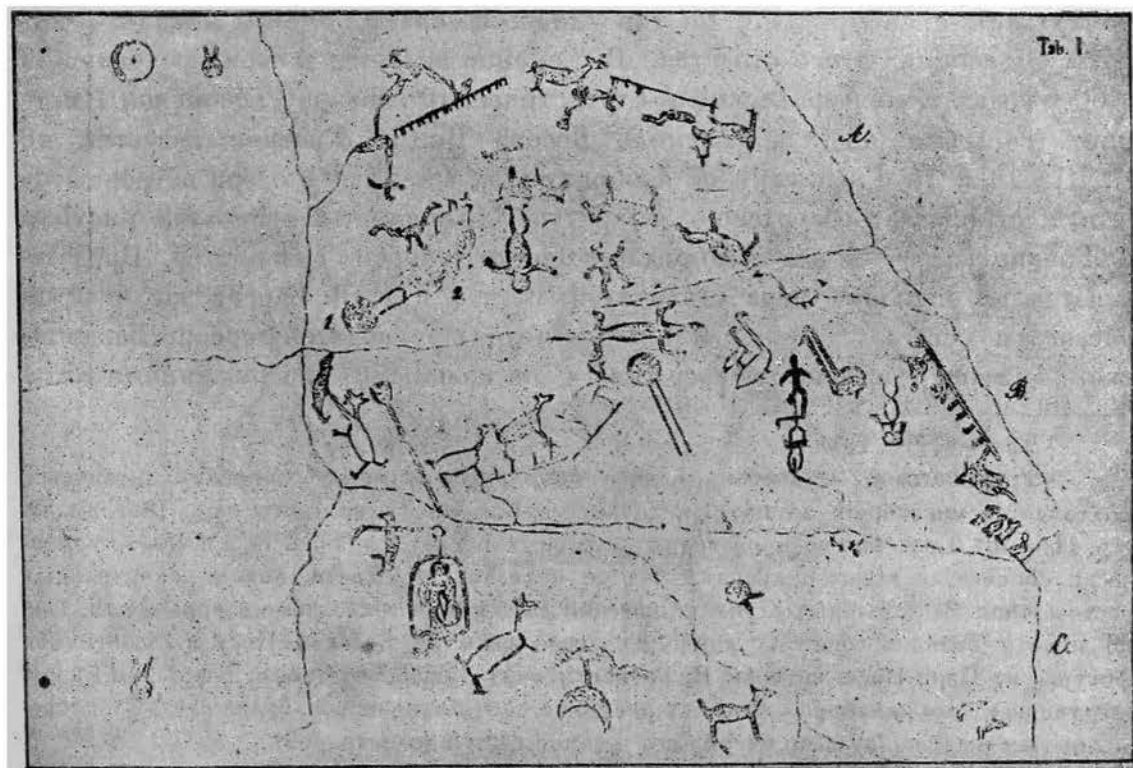 Tab. I.
A.
1.
2.
B.
C.